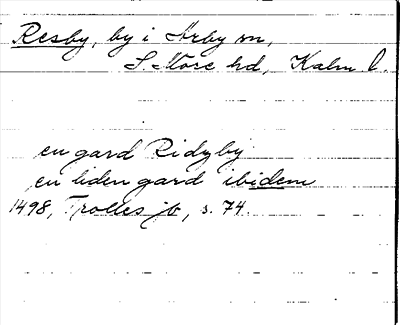 Resby, by i Arby sn,
S. Möre hd, Kalm l.
en gard Ridzby
en liden gard ibidem
1498, Trolles jb, s. 74.